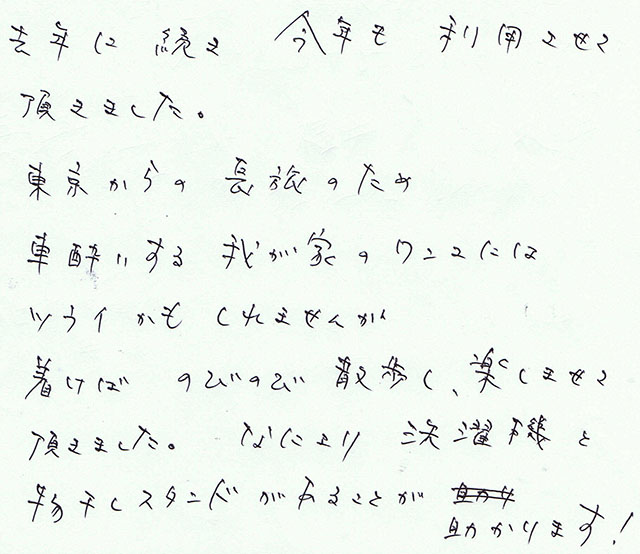 去年に続き 今年も 利用させて
頂きました。
東京からの 長旅のため
車酔いする 我が家のワンコには
ツライかも しれませんが
着けば のびのび 散歩し、楽しませて
頂きました。 なにより 洗濯機と
物干しスタンドがあることが
助かります!